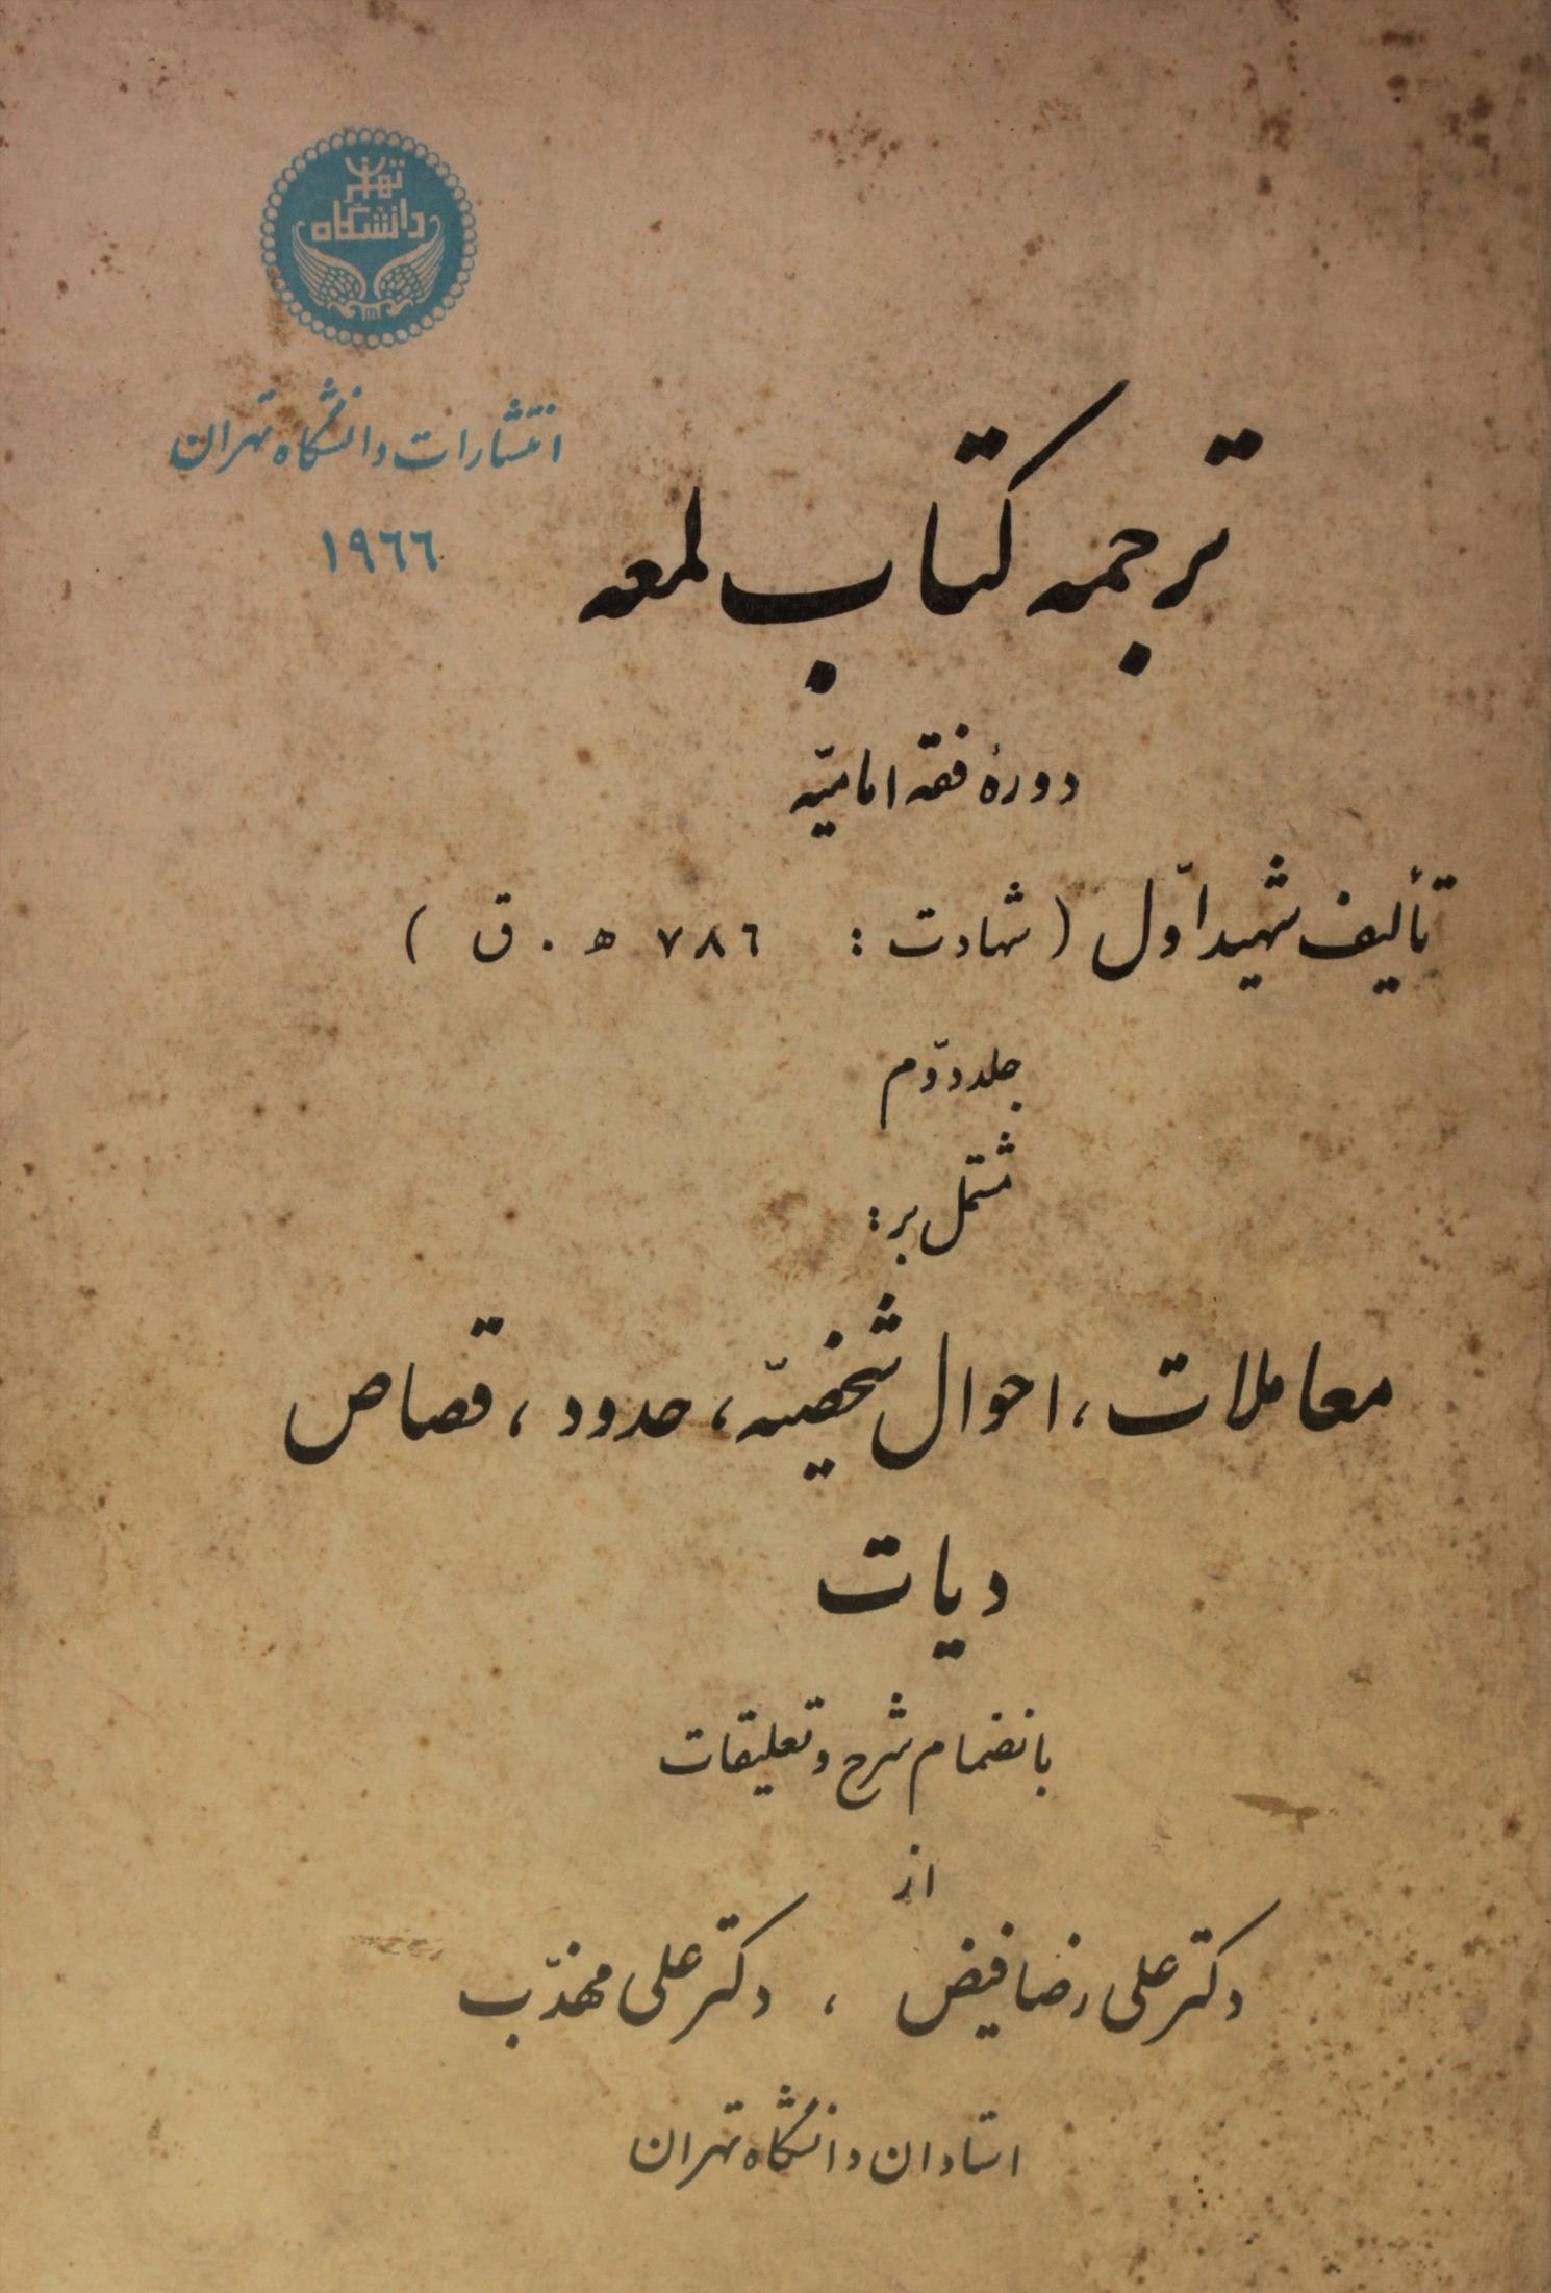 تهران
دانشگاه
انتشارات دانشگاه تهران
۱۹۶۶
ترجمه کتاب لمعه
دورهٔ فقه امامیّه
تألیف شهید اوّل (شهادت : ۷۸۶ ه . ق )
جلد دوّم
مشتمل بر :
معاملات ، احوال شخصیّه ، حدود ، قصاص
دیات
بانضمام شرح و تعلیقات
از
دکتر علی رضا فیض ، دکتر علی مهذّب
استادان دانشگاه تهران